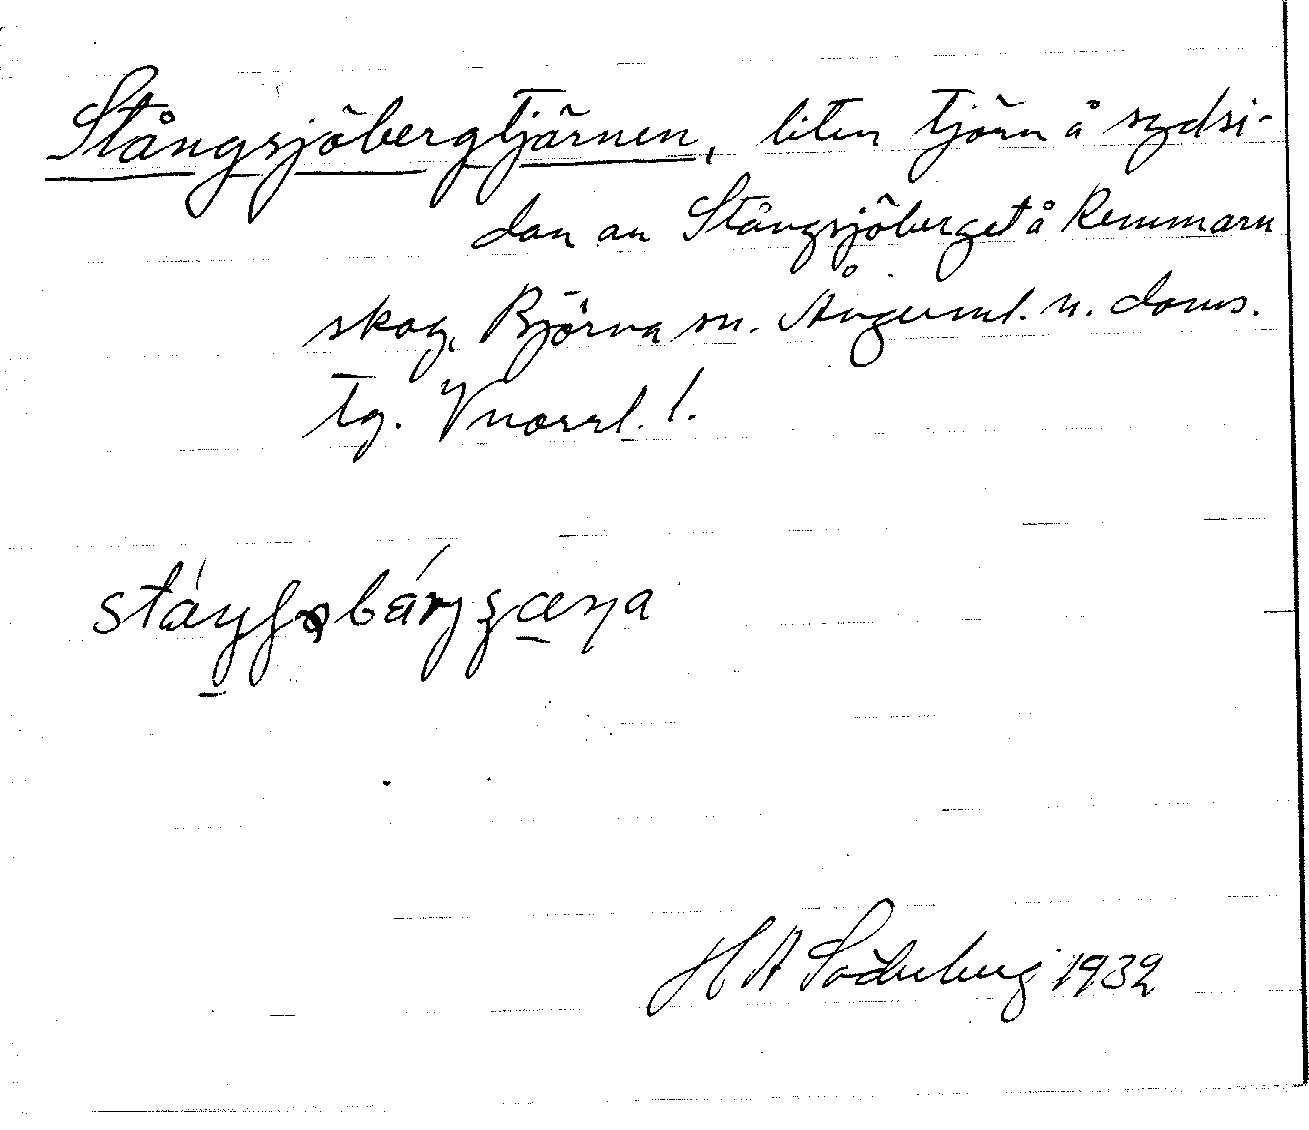 Stångsjöbergtjärnen, liten tjärn å sydsi-
dan av Stångsjöberget å Remmarn
skog, Björna sn. Ångerml. n. doms.
tg. Vnorrl. l.
H A Söderberg 1932